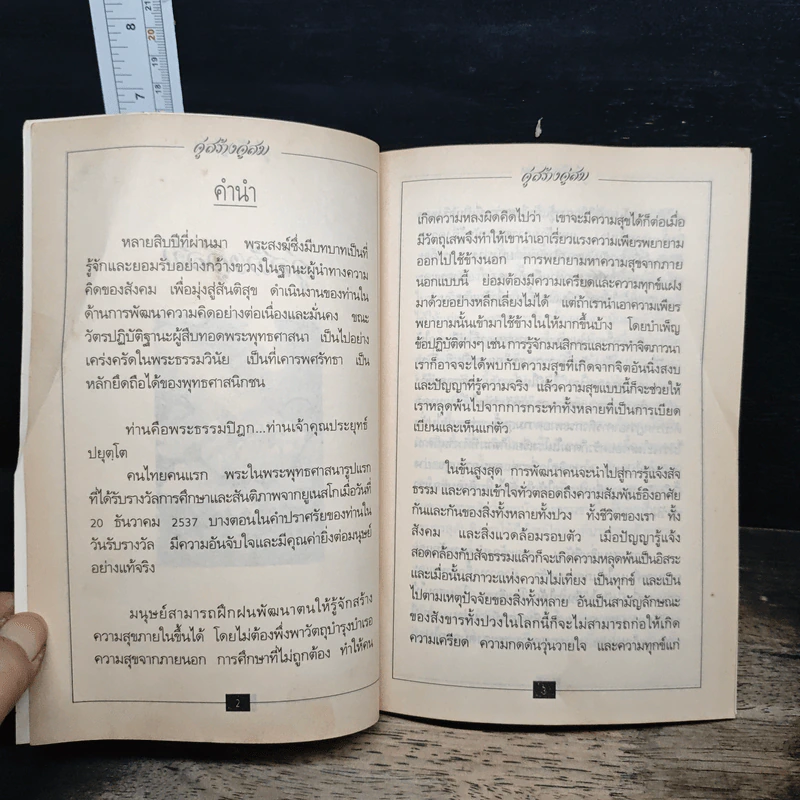 8
20
19
7
18
คู่สร้างคู่สม
คำนำ
หลายสิบปีที่ผ่านมา พระสงฆ์ซึ่งมีบทบาทเป็นที่
รู้จักและยอมรับอย่างกว้างขวางในฐานะผู้นำทางความ
คิดของสังคม เพื่อมุ่งสู่สันติสุข ดำเนินงานของท่านใน
ด้านการพัฒนาความคิดอย่างต่อเนื่องและมั่นคง ขณะ
วัตรปฏิบัติฐานะผู้สืบทอดพระพุทธศาสนา เป็นไปอย่าง
เคร่งครัดในพระธรรมวินัย เป็นที่เคารพศรัทธา เป็น
หลักยึดถือได้ของพุทธศาสนิกชน
ท่านคือพระธรรมปิฎก...ท่านเจ้าคุณประยุทธ์
ปยุตฺโต
คนไทยคนแรก พระในพระพุทธศาสนารูปแรก
ที่ได้รับรางวัลการศึกษาและสันติภาพจากยูเนสโกเมื่อวันที่
20 ธันวาคม 2537 บางตอนในคำปราศรัยของท่านใน
วันรับรางวัล มีความอันจับใจและมีคุณค่ายิ่งต่อมนุษย์
อย่างแท้จริง
มนุษย์สามารถฝึกฝนพัฒนาตนให้รู้จักสร้าง
ความสุขภายในขึ้นได้ โดยไม่ต้องพึ่งพาวัตถุบำรุงบำเรอ
ความสุขจากภายนอก การศึกษาที่ไม่ถูกต้อง ทำให้คน
2
คู่สร้างคู่สม
เกิดความหลงผิดคิดไปว่า เขาจะมีความสุขได้ก็ต่อเมื่อ
มีวัตถุเสพจึงทำให้เขานำเอาเรี่ยวแรงความเพียรพยายาม
ออกไปใช้ข้างนอก การพยายามหาความสุขจากภาย
นอกแบบนี้ ย่อมต้องมีความเครียดและความทุกข์แฝง
มาด้วยอย่างหลีกเลี่ยงไม่ได้ แต่ถ้าเรานำเอาความเพียร
พยายามนั้นเข้ามาใช้ข้างในให้มากขึ้นบ้าง โดยบำเพ็ญ
ข้อปฏิบัติต่างๆ เช่น การรู้จักมนสิการและการทำจิตภาวนา
เราก็อาจจะได้พบกับความสุขที่เกิดจากจิตอันนิ่งสงบ
และปัญญาที่รู้ความจริง แล้วความสุขแบบนี้ก็จะช่วยให้
เราหลุดพ้นไปจากการกระทำทั้งหลายที่เป็นการเบียด
เบียนและเห็นแก่ตัว
ในขั้นสูงสุด การพัฒนาคนจะนำไปสู่การรู้แจ้งสัจ
ธรรม และความเข้าใจทั่วตลอดถึงความสัมพันธ์อิงอาศัย
กันและกันของสิ่งทั้งหลายทั้งปวง ทั้งชีวิตของเรา ทั้ง
สังคม และสิ่งแวดล้อมรอบตัว เมื่อปัญญารู้แจ้ง
สอดคล้องกับสัจธรรมแล้วก็จะเกิดความหลุดพ้นเป็นอิสระ
และเมื่อนั้นสภาวะแห่งความไม่เที่ยง เป็นทุกข์ และเป็น
ไปตามเหตุปัจจัยของสิ่งทั้งหลาย อันเป็นสามัญลักษณะ
ของสังขารทั้งปวงในโลกนี้ก็จะไม่สามารถก่อให้เกิด
ความเครียด ความกดดันวุ่นวายใจ และความทุกข์แก่
3